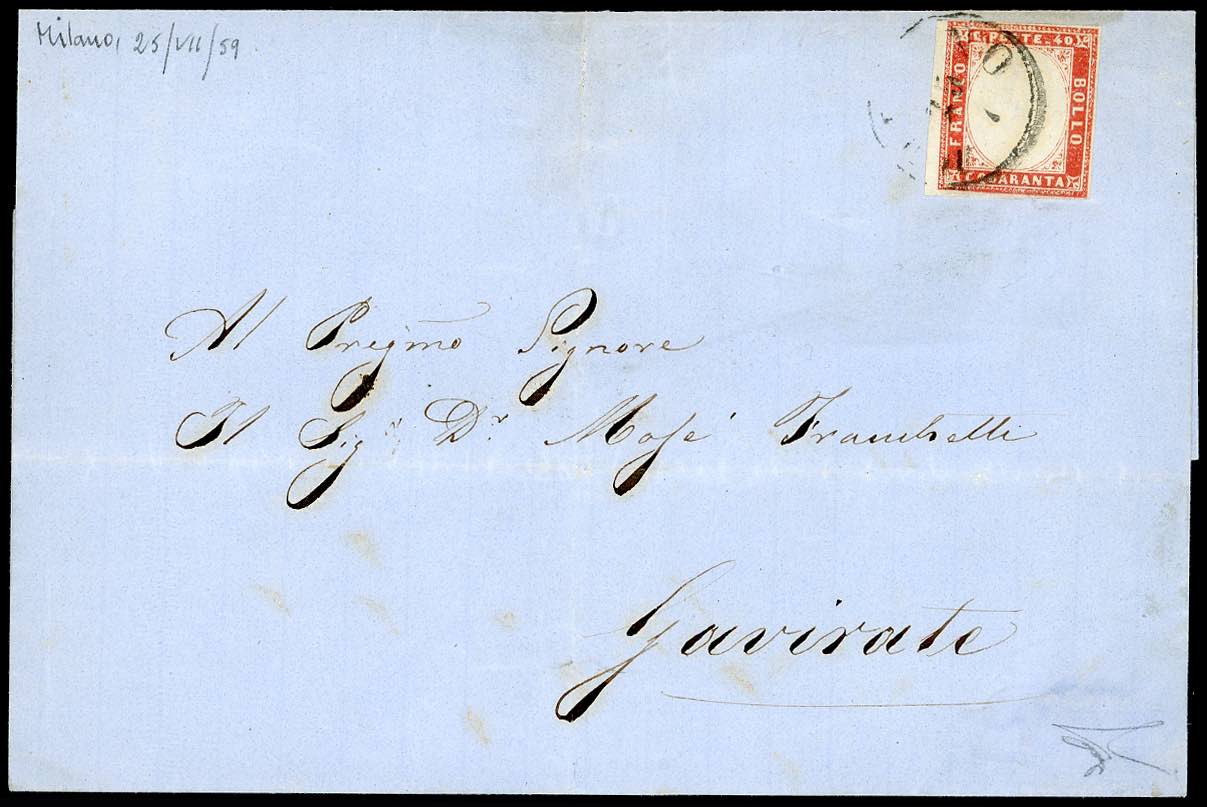 Milano, 25/VII/59
C.PSTE.40
FRANCO
BOLLO
C.QUARANTA
NO
Al Pregmo Signore
Il Sigr Dr Mosé Franchetti
Gavirate